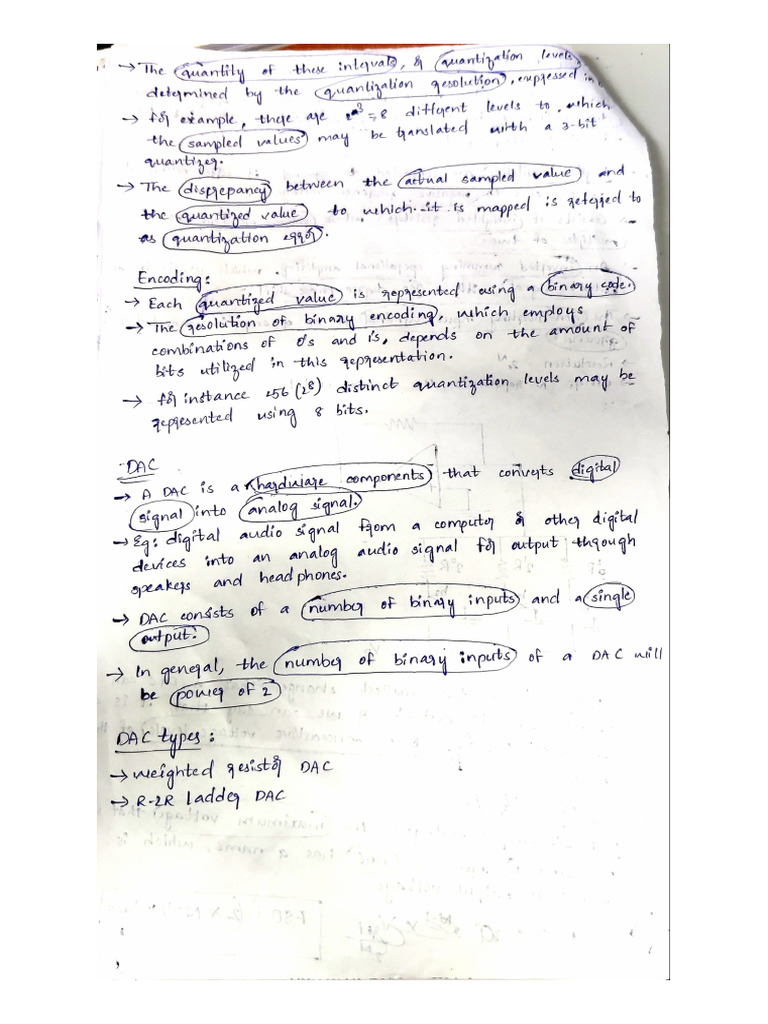 → The quantity of these intervals, & quantization levels
determined by the quantization resolution, expressed in
→ for example, there are 2^3 = 8 different levels to which
the sampled values may be translated with a 3-bit
quantizer.
→ The disprepancy between the actual sampled value and
the quantized value to which it is mapped is referred to
as quantization error.
Encoding:
→ Each quantized value is represented using a binary code.
→ The resolution of binary encoding, which employs
combinations of 0's and 1's, depends on the amount of
bits utilized in this representation.
→ for instance 256 (2^8) distinct quantization levels may be
represented using 8 bits.
DAC
→ A DAC is a hardware components that converts digital
signal into analog signal.
→ Eg: digital audio signal from a computer or other digital
devices into an analog audio signal for output through
speakers and headphones.
→ DAC consists of a number of binary inputs and a single
output.
→ In general, the number of binary inputs of a DAC will
be power of 2
DAC types:
→ weighted resistor DAC
→ R-2R ladder DAC